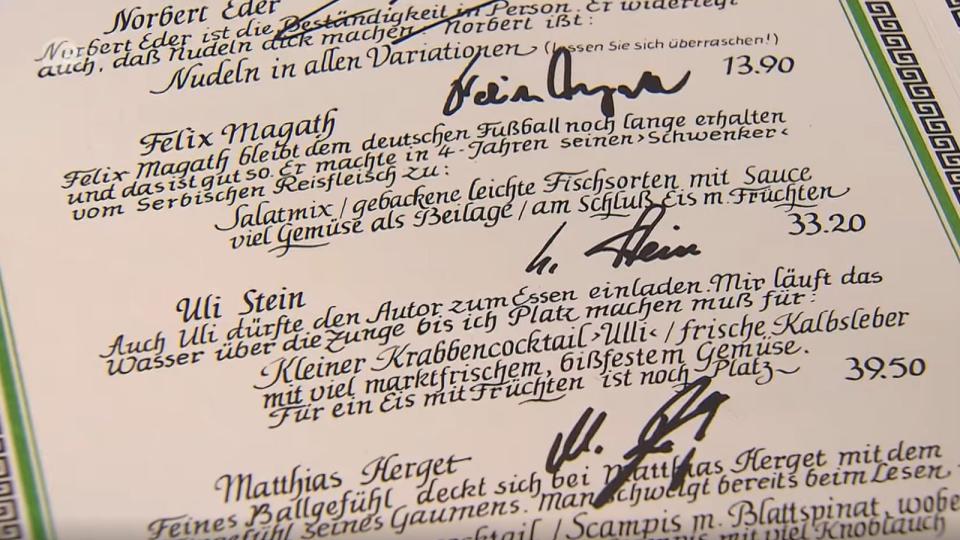 Norbert Eder
Norbert Eder ist die Beständigkeit in Person. Er widerlegt
auch, daß Nudeln dick machen. Norbert ißt:
Nudeln in allen Variationen (lassen Sie sich überraschen!)
13.90
Felix Magath
Felix Magath bleibt dem deutschen Fußball noch lange erhalten
und das ist gut so. Er machte in 4-Jahren seinen ›Schwenker‹
vom Serbischen Reisfleisch zu:
Salatmix / gebackene leichte Fischsorten mit Sauce
viel Gemüse als Beilage / am Schluß Eis m. Früchten
33.20
U. Stein
Uli Stein
Auch Uli dürfte den Autor zum Essen einladen. Mir läuft das
Wasser über die Zunge bis ich Platz machen muß für:
Kleiner Krabbencocktail ›Ulli‹ / frische Kalbsleber
mit viel marktfrischem, bißfestem Gemüse.
Für ein Eis mit Früchten ist noch Platz
39.50
Matthias Herget
Feines Ballgefühl deckt sich bei Matthias Herget mit dem
seines Gaumens. Man schwelgt bereits beim Lesen.
/ Scampis m. Blattspinat, wobe
mit viel Knoblauch